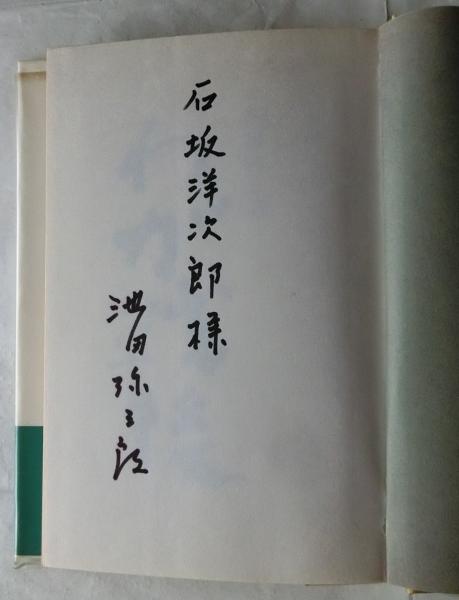 石坂洋次郎様
池田弥三郎